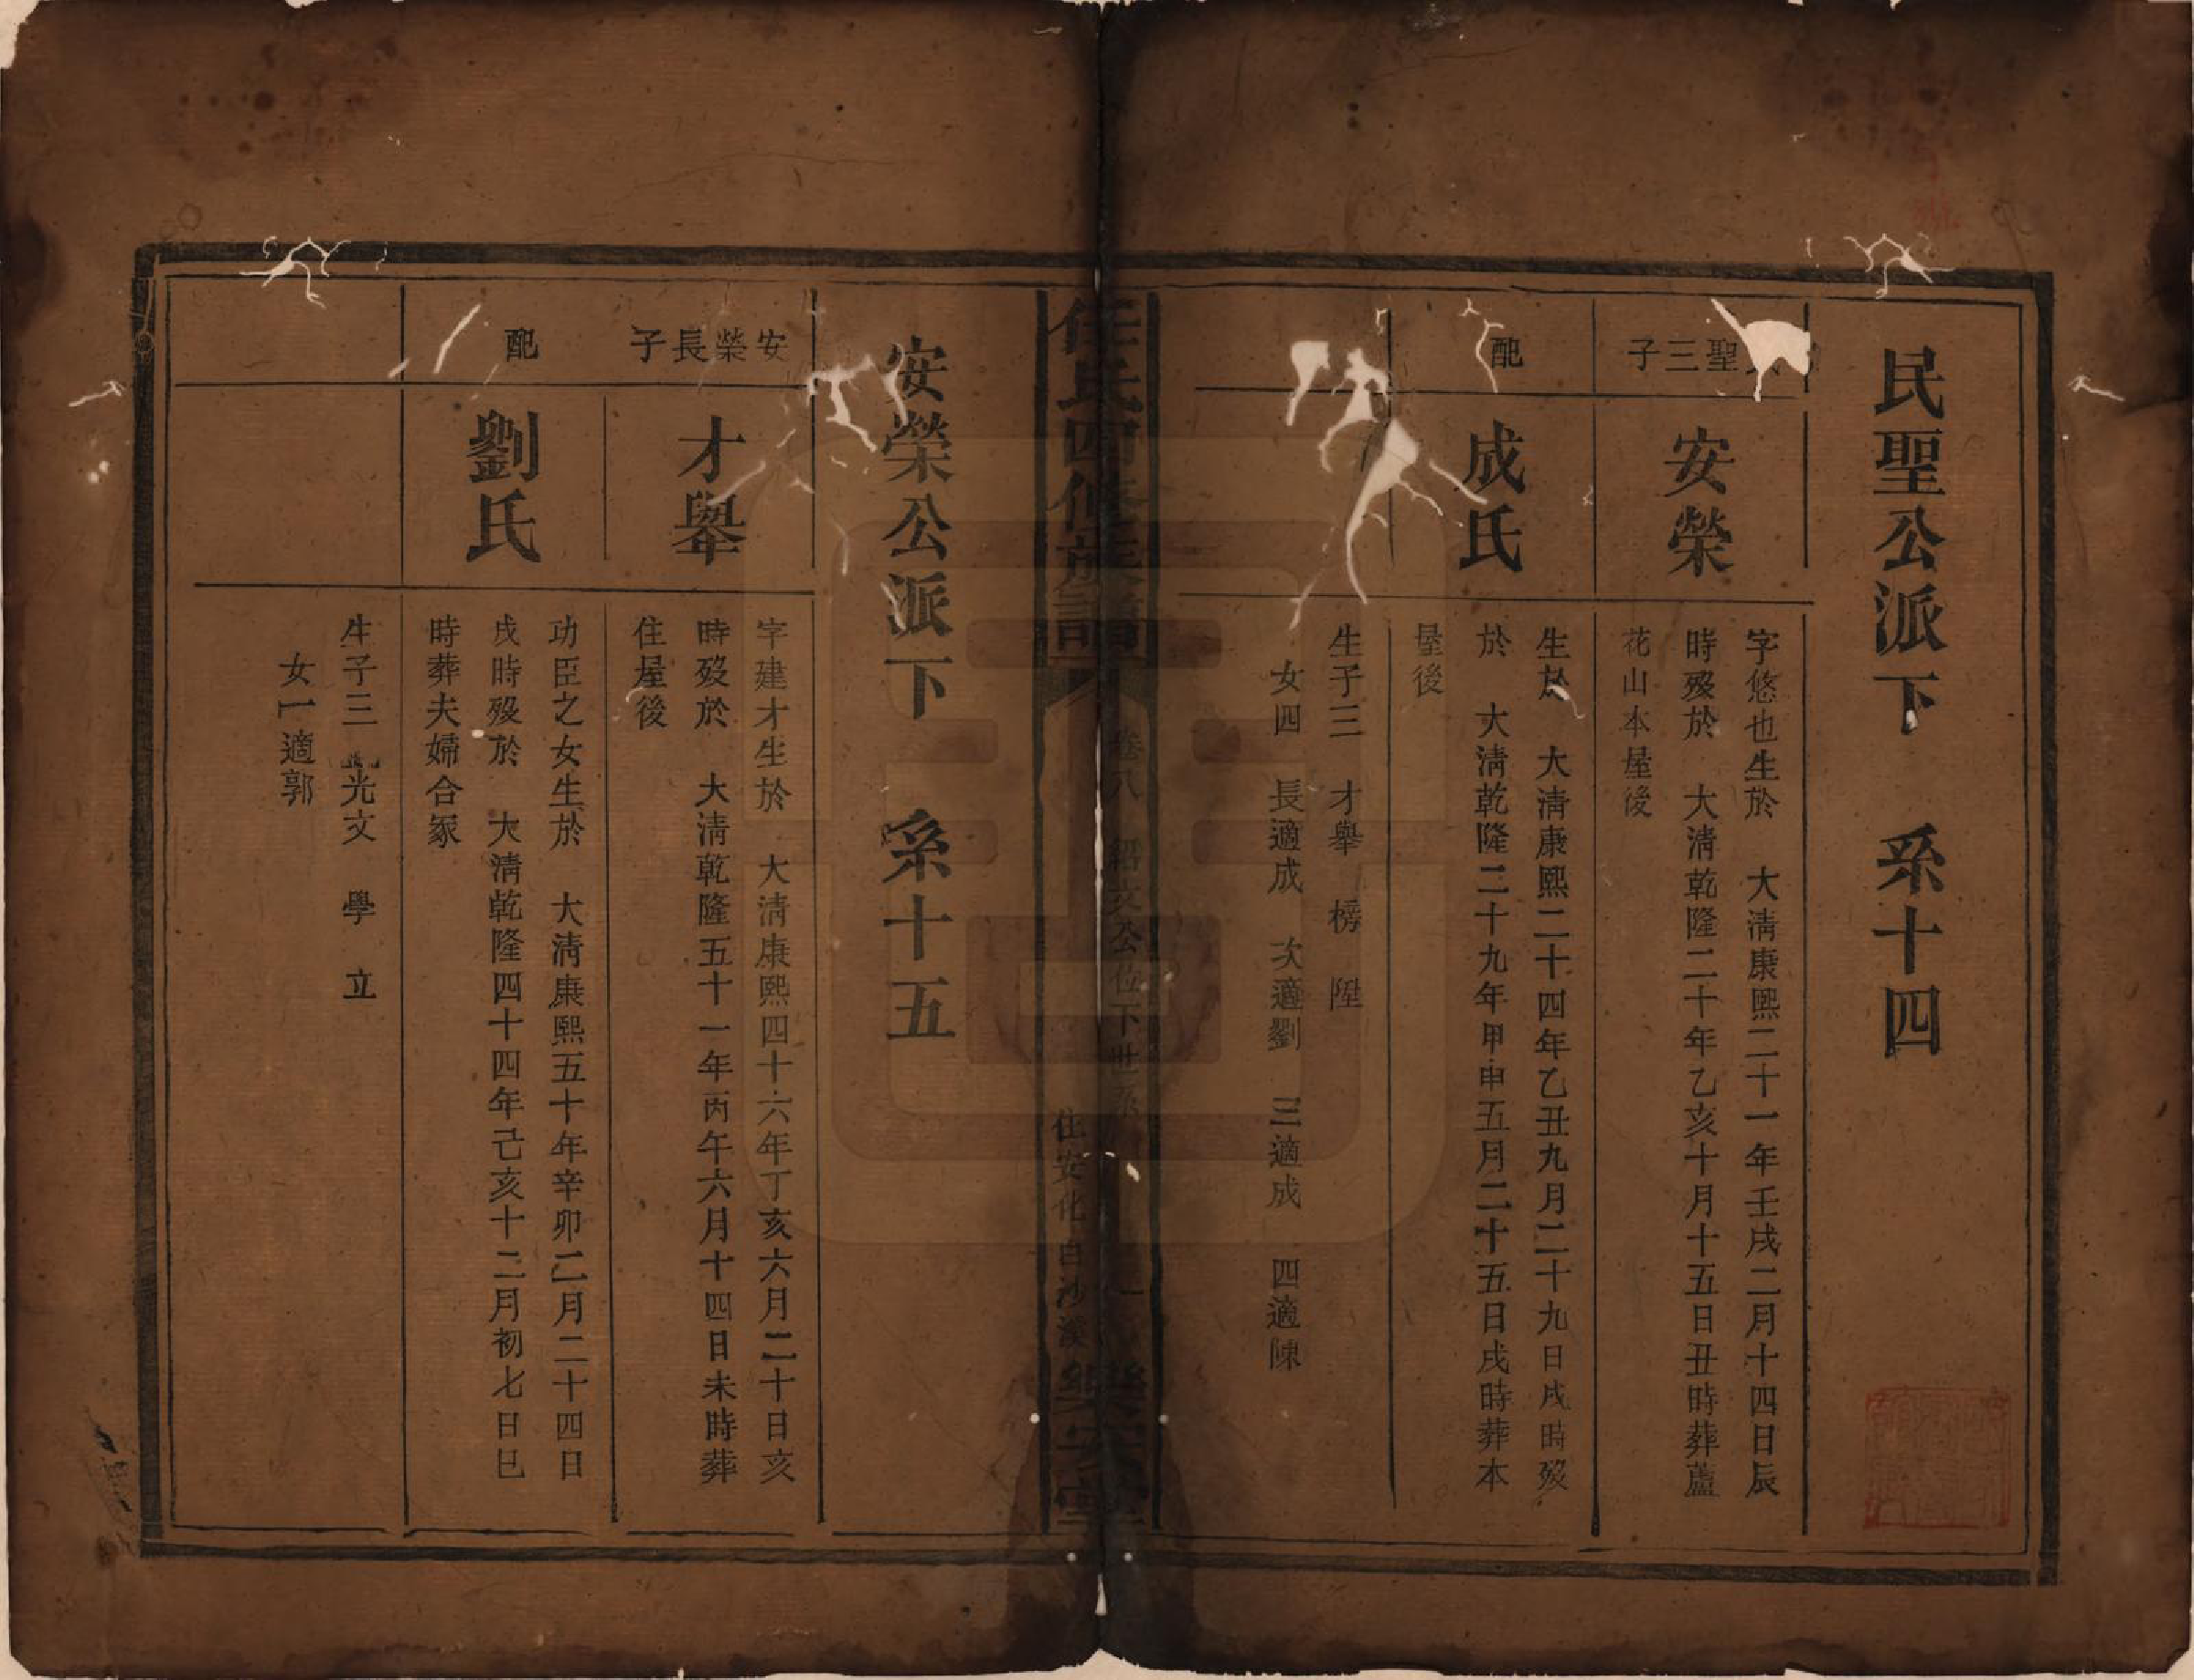 民聖公派下 系十四
聖三子
安榮
字悠也生於 大清康熙二十一年壬戌二月十四日辰
時歿於 大清乾隆二十年乙亥十月十五日丑時葬蘆
花山本屋後
配
成氏
生於 大清康熙二十四年乙丑九月二十九日戌時歿
於 大清乾隆二十九年甲申五月二十五日戌時葬本
屋後
生子三 才舉 榜 陞
女四 長適成 次適劉 三適成 四適陳
任氏四修族譜
卷八 紹文公位下世系
住安化白沙溪
樂安堂
安榮公派下 系十五
安榮長子
才舉
字建才生於 大清康熙四十六年丁亥六月二十日亥
時歿於 大清乾隆五十一年丙午六月十四日未時葬
住屋後
配
劉氏
功臣之女生於 大清康熙五十年辛卯二月二十四日
戌時歿於 大清乾隆四十四年己亥十二月初七日巳
時葬夫婦合冢
生子三 光文 學 立
女一適郭